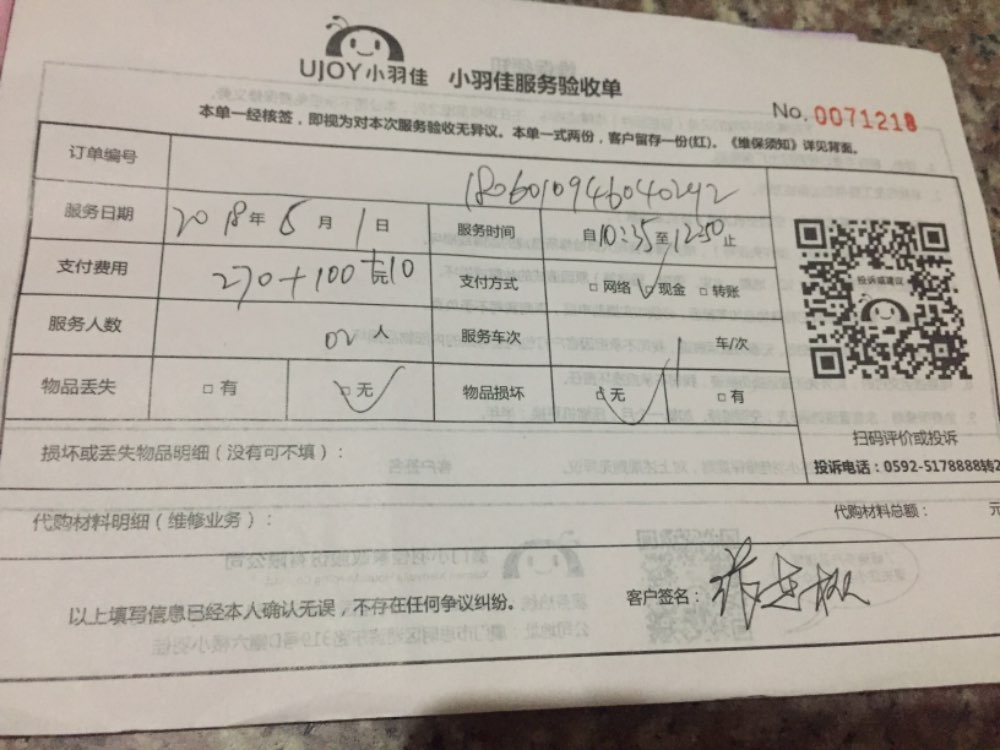 UJOY小羽佳 小羽佳服务验收单
No. 0071218
本单一经核签，即视为对本次服务验收无异议。本单一式两份，客户留存一份(红)。《维保须知》详见背面。
订单编号 1806010946040242
服务日期 2018年6月1日 服务时间 自10:35至12:50止
支付费用 270+100+10 元 支付方式 □网络 ☑现金 □转账
服务人数 02人 服务车次 1 车/次
物品丢失 □有 ☑无 物品损坏 ☑无 □有
投诉或建议
扫码评价或投诉
投诉电话：0592-5178888转2
损坏或丢失物品明细（没有可不填）：
代购材料明细（维修业务）： 代购材料总额： 元
以上填写信息已经本人确认无误，不存在任何争议纠纷。 客户签名：